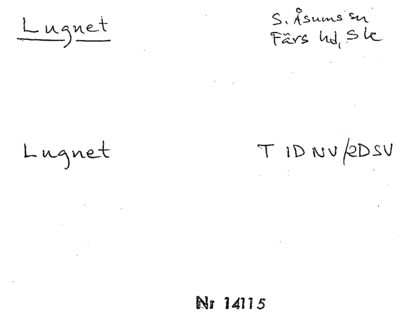 Lugnet
S. Åsums sn
Färs hd, Sk
Lugnet
T 1D NV/2D SV
Nr 14115